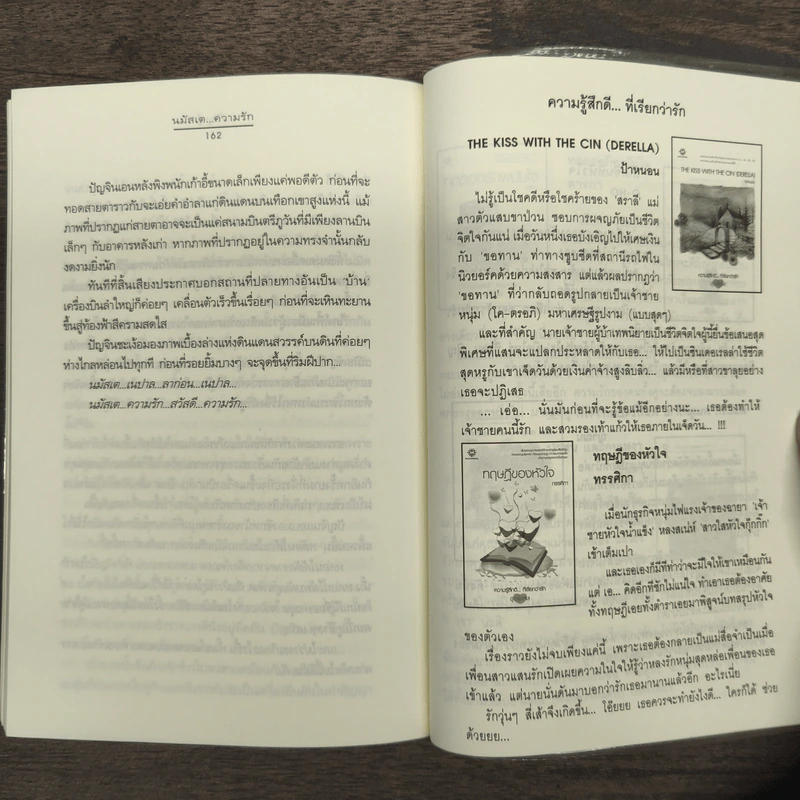 นมัสเต...ความรัก
162
ปัญจินเอนหลังพิงพนักเก้าอี้ขนาดเล็กเพียงแค่พอดีตัว ก่อนที่จะ
ทอดสายตาราวกับจะเอ่ยคำอำลาแก่ดินแดนบนเทือกเขาสูงแห่งนี้ แม้
ภาพที่ปรากฏแก่สายตาอาจจะเป็นแค่สนามบินตรีภูวันที่มีเพียงลานบิน
เล็กๆ กับอาคารหลังเก่า หากภาพที่ปรากฏอยู่ในความทรงจำนั้นกลับ
งดงามยิ่งนัก
ทันทีที่สิ้นเสียงประกาศบอกสถานที่ปลายทางอันเป็น 'บ้าน'
เครื่องบินลำใหญ่ก็ค่อยๆ เคลื่อนตัวเร็วขึ้นเรื่อยๆ ก่อนที่จะเหินทะยาน
ขึ้นสู่ท้องฟ้าสีความสดใส
ปัญจินชะเง้อมองภาพเบื้องล่างแห่งดินแดนสวรรค์บนดินที่ค่อยๆ
ห่างไกลหล่อนไปทุกที ก่อนที่รอยยิ้มบางๆ จะจุดขึ้นที่ริมฝีปาก...
นมัสเต...เนปาล...ลาก่อน...เนปาล...
นมัสเต...ความรัก...สวัสดี...ความรัก...
ความรู้สึกดี... ที่เรียกว่ารัก
THE KISS WITH THE CIN (DERELLA)
ป้าหนอน
ไม่รู้เป็นโชคดีหรือโชคร้ายของ 'สราลี' แม่
สาวตัวแสบขาป่วน ชอบการผจญภัยเป็นชีวิต
จิตใจกันแน่ เมื่อวันหนึ่งเธอบังเอิญไปให้เศษเงิน
กับ 'ขอทาน' ท่าทางซูบซีดที่สถานีรถไฟใน
นิวยอร์คด้วยความสงสาร แต่แล้วผลปรากฏว่า
'ขอทาน' ที่ว่ากลับถอดรูปกลายเป็นเจ้าชาย
หนุ่ม (โค-ตรอภิ) มหาเศรษฐีรูปงาม (แบบสุดๆ)
และที่สำคัญ นายเจ้าชายผู้บ้าเทพนิยายเป็นชีวิตจิตใจผู้นี้ยื่นข้อเสนอสุด
พิเศษที่แสนจะแปลกประหลาดให้กับเธอ... ให้ไปเป็นซินเดอเรลล่าใช้ชีวิต
สุดหรูกับเขาเจ็ดวันด้วยเงินค่าจ้างสูงลิบลิ่ว... แล้วมีหรือที่สาวขาลุยอย่าง
เธอจะปฏิเสธ
... เอ่อ... นั่นมันก่อนที่จะรู้ข้อแม้อีกอย่างนะ... เธอต้องทำให้
เจ้าชายคนนี้รัก และสวมรองเท้าแก้วให้เธอภายในเจ็ดวัน... !!!
THE KISS WITH THE CIN (DERELLA)
ทฤษฎีของหัวใจ
ทรรศิกา
ทฤษฎีของหัวใจ
ทรรศิกา
ความรู้สึกดี... ที่เรียกว่ารัก
เมื่อนักธุรกิจหนุ่มไฟแรงเจ้าของฉายา 'เจ้า
ชายหัวใจน้ำแข็ง' หลงเสน่ห์ 'สาวใสหัวใจกุ๊กกิ๊ก'
เข้าเต็มเปา
และเธอเองก็มีทีท่าว่าจะมีใจให้เขาเหมือนกัน
แต่ เอ... คิดอีกทีชักไม่แน่ใจ ทำเอาเธอต้องอาศัย
ทั้งทฤษฎีเอยทั้งตำราเอยมาพิสูจน์บทสรุปหัวใจ
ของตัวเอง
เรื่องราวยังไม่จบเพียงแค่นี้ เพราะเธอต้องกลายเป็นแม่สื่อจำเป็นเมื่อ
เพื่อนสาวแสนรักเปิดเผยความในใจให้รู้ว่าหลงรักหนุ่มสุดหล่อเพื่อนของเธอ
เข้าแล้ว แต่นายนั่นดันมาบอกว่ารักเธอมานานแล้วอีก อะไรเนี่ย
รักวุ่นๆ สี่เส้าจึงเกิดขึ้น... โอ๊ยยย เธอควรจะทำยังไงดี... ใครก็ได้ ช่วย
ด้วยยย...